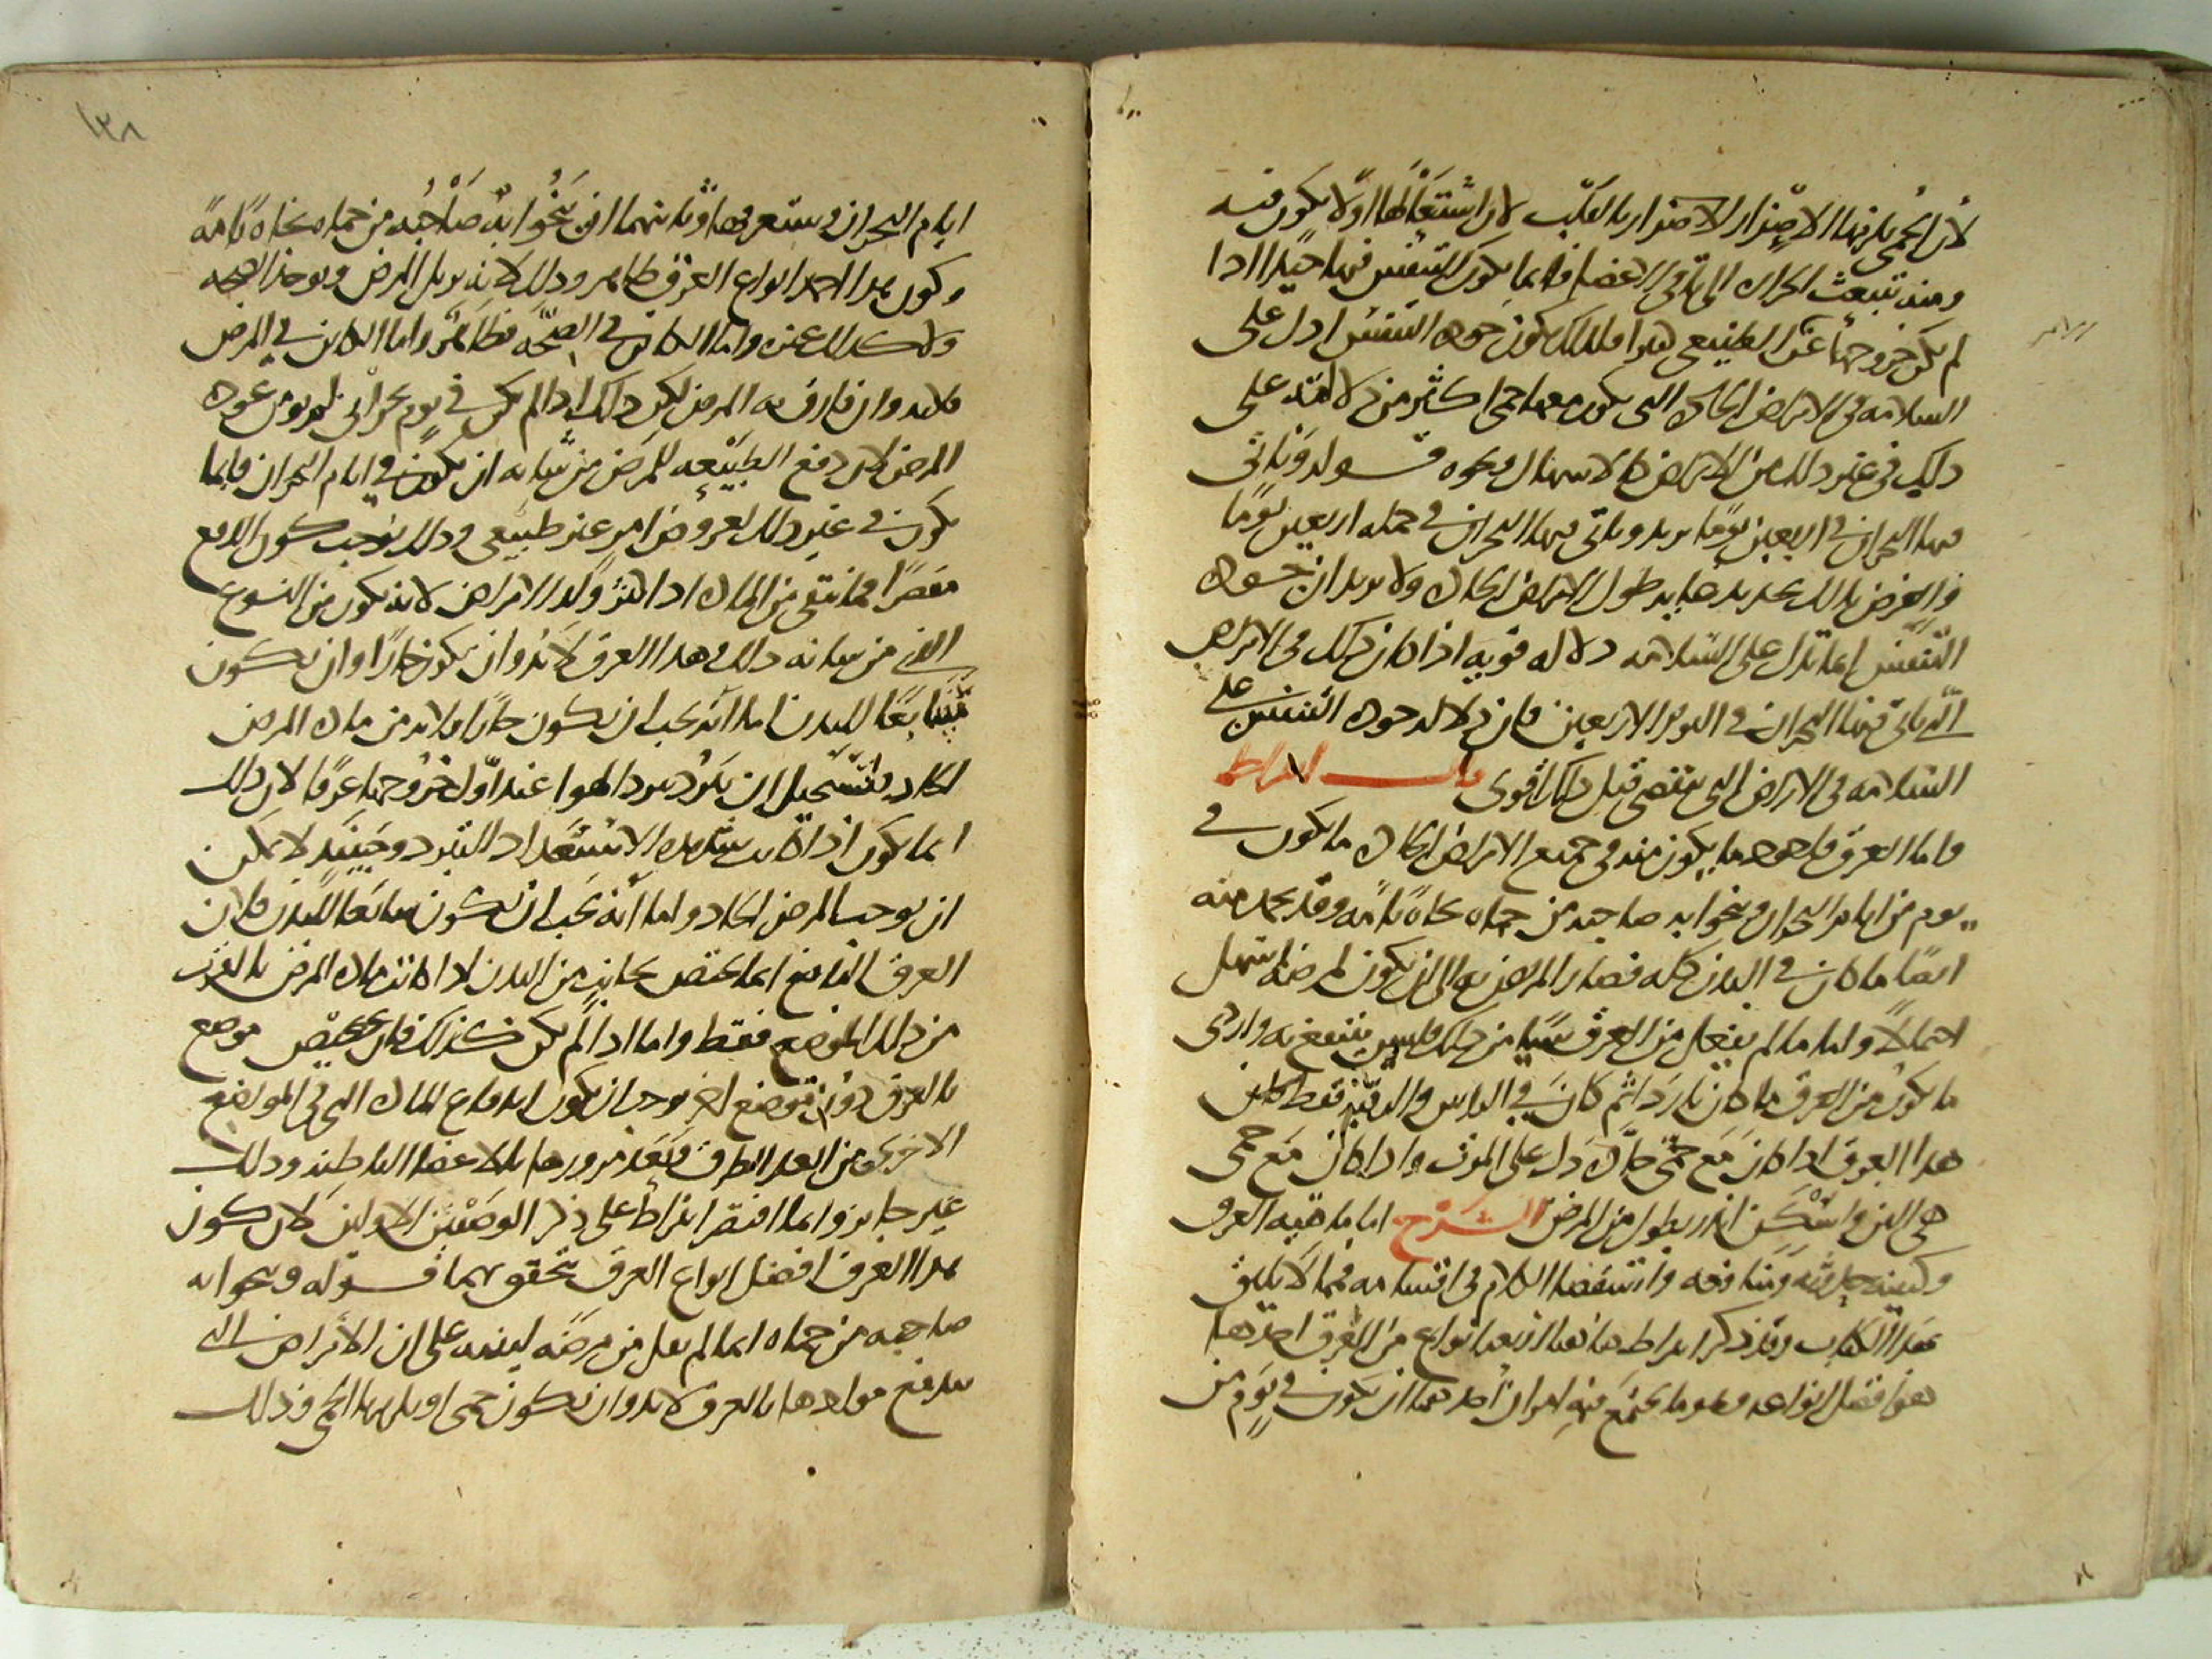 لأن الحمى يلزمها الاضرار بالقلب لان اشتعالها اولا يكون فيه
ومنه تنبعث الحرارة الى باقي الاعضا فانما يكون التنفس فيها جيدا اذا
لم يكن خروجها عن الطبيعي كثيرا فلذلك يكون جودة التنفس ادل على
السلامه في الامراض الحادة التي يكون معها حمى اكثر من دلالته على
ذلك في غير ذلك من الامراض كالاسهال ونحوه قوله وياتي
فيها البحران في اربعين يوما يريد وياتي فيها البحران في جملة اربعين يوما
والغرض بذلك تحديد طول الامراض الحادة ولا يريد ان جودة
التنفس انما تدل على السلامه دلاله قويه اذا كان ذلك في الامراض
التي ياتي فيها البحران في اليوم الاربعين فان دلالة جودة التنفس على
السلامه في الامراض التي تنقضي قبل ذلك اقوى قال ابقراط
واما العرق فاجود ما يكون منه في جميع الامراض الحادة ما يكون في
يوم من ايام البحران وينجو به صاحبه من حماه نجاة تامه وقد يحمد منه
ايضا ما كان في البدن كله فصار المريض به الى ان يكون لمرضه اسهل
احتمالا واما ما لم يفعل من العرق شيا من ذلك فليس ينتفع به واردى
ما يكون من العرق ما كان باردا ثم كان في الراس والرقبة فقط فان
هذا العرق اذا كان مع حمى حادة دل على الموت واذا كان مع حمى
هي الين واسكن انذر بطول من المرض الشرح اما ماهيه العرق
وكيفيه حدوثه ومنافعه واستقصا الكلام في اقسامه فمما لا يليق
بهذا الكتاب وقد ذكر ابقراط هاهنا اربعة انواع من العرق احدها
هو افضل انواعه وهو ما يجتمع فيه امران احدهما ان يكون في يوم من
١٣٨
ايام البحران وستعرفها وثانيهما ان ينجو به صاحبه من حماه نجاة تامه
وكون هذا احمد انواع العرق ظاهر وذلك لانه يزيل المرض ويوجد الصحه
ولا كذلك غيره واما الكائن في الصحه فظاهر واما الكائن في المرض
فلانه وان فارق به المرض لكن ذلك اذا لم يكن في يوم بحراني لم يؤمن عوده
المرض لان دفع الطبيعه للمرض من شانه ان يكون في ايام البحران فانما
يكون في غير ذلك لعروض امر غير طبيعي وذلك يوجب كون الدفع
مقصرا فما تبقى من المادة اذا اكثر وكد الامراض لانه يكون من النوع
الذي من شانه ذلك وهذا العرق لا بد وان يكون حارا وان يكون
سابغا للبدن اما انه يجب ان يكون حارا فلانه من مادة المرض
الحاد يستحيل ان يكون برد الهوا عند اول خروجها عرقا لان ذلك
انما يكون اذا كانت شديدة الاستعداد للتبرد وحينئذ لا يمكن
ان يوجب المرض الحاد واما انه يجب ان يكون سابغا للبدن فلان
العرق النافع انما يختص بجانب من البدن اذا كانت مادة المرض بالقرب
من ذلك الموضع فقط واما اذا لم يكن كذلك فان تخصيص موضع
بالعرق دون موضع اخر يوجب ان يكون اندفاع المادة التي في المواضع
الاخرى من ابعد الطرق فيبعد مرورها بالاعضا الباطنه وذلك
غير جايز وانما اقتصر ابقراط على ذكر الوصفين الاولين لان كون
هذا العرق افضل انواع العرق يتحقق بهما قوله وينجو به
صاحبه من حماه انما لم يقل من مرضه لينبه على ان الامراض التي
تندفع موادها بالعرق لا بد وان يكون حمى او يلزمها الحمى وذلك